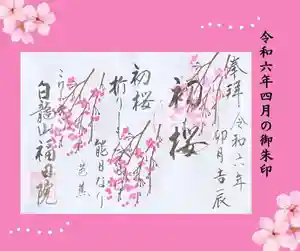 令和六年四月の御朱印
奉拝
令和六年
卯月吉辰
初桜
初桜
折りしも
能日なり
芭蕉
白龍山福田院